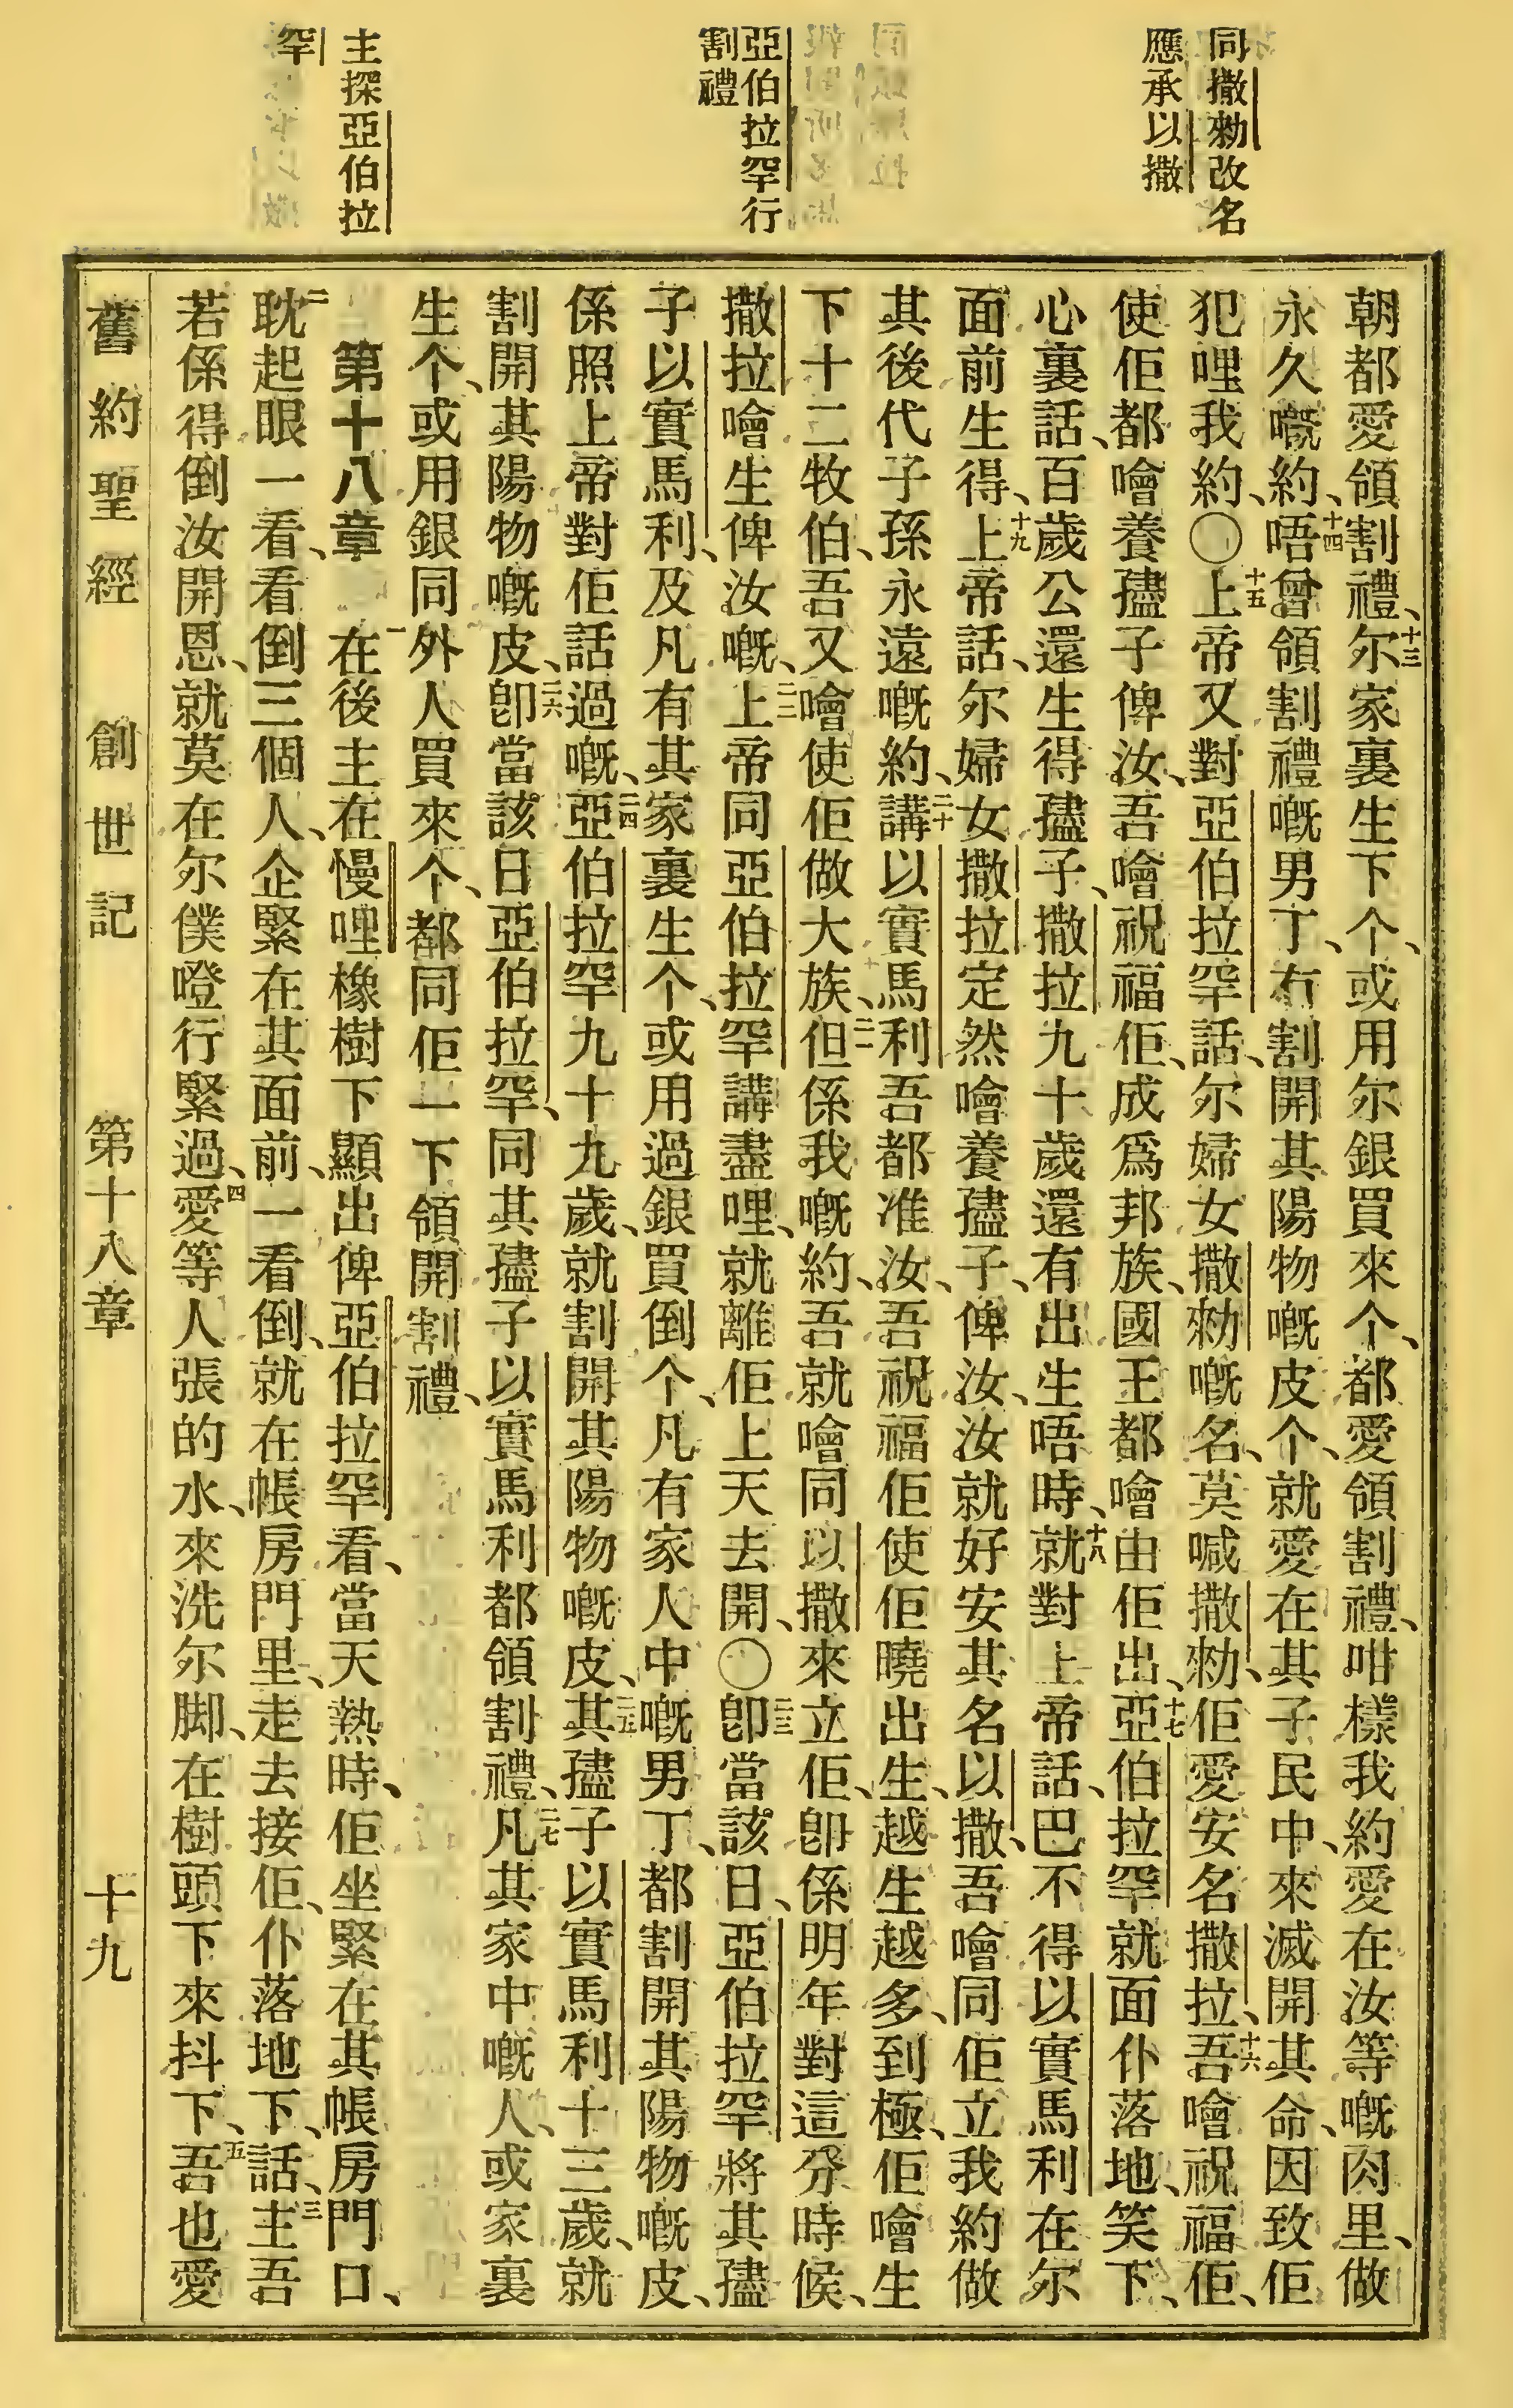 同撒勑改名
應承以撒
亞伯拉罕行
割禮
主探亞伯拉
罕
朝都愛領割禮、十三尔家裏生下个、或用尔銀買來个、都愛領割禮、咁樣我約愛在汝等嘅肉里、做
永久嘅約、十四唔曾領割禮嘅男丁、冇割開其陽物嘅皮个、就愛在其子民中、來滅開其命、因致佢
犯哩我約、〇十五上帝又對亞伯拉罕話、尔婦女撒勑嘅名、莫喊撒勑、佢愛安名撒拉、十六吾噲祝福佢、
使佢都噲養孻子俾汝、吾噲祝福佢、成爲邦族、國王都噲由佢出、十七亞伯拉罕就面仆落地、笑下、
心裏話、百歲公還生得孻子、撒拉九十歲還有出生唔時、十八就對上帝話、巴不得以實馬利在尔
面前生得、十九上帝話、尔婦女撒拉定然噲養孻子、俾汝、汝就好安其名以撒、吾噲同佢立我約做
其後代子孫永遠嘅約、二十講以實馬利吾都准汝、吾祝福佢使佢曉出生、越生越多、到極、佢噲生
下十二牧伯、吾又噲使佢做大族、二一但係我嘅約、吾就噲同以撒來立佢、卽係明年對這分時候、
撒拉噲生俾汝嘅、二二上帝同亞伯拉罕講盡哩、就離佢上天去開、〇二三卽當該日、亞伯拉罕將其孻
子以實馬利、及凡有其家裏生个、或用過銀買倒个、凡有家人中嘅男丁、都割開其陽物嘅皮、
係照上帝對佢話過嘅、二四亞伯拉罕九十九歲、就割開其陽物嘅皮、二五其孻子以實馬利十三歲、就
割開其陽物嘅皮、二六卽當該日亞伯拉罕、同其孻子以實馬利都領割禮、二七凡其家中嘅人、或家裏
生个、或用銀同外人買來个、都同佢一下領開割禮、
第十八章　一在後主在慢哩橡樹下顯出俾亞伯拉罕看、當天熱時、佢坐緊在其帳房門口、
二耽起眼一看、看倒三個人、企緊在其面前、一看倒、就在帳房門里、走去接佢、仆落地下、話、三主吾
若係得倒汝開恩、就莫在尔僕噔行緊過、四愛等人張的水、來洗尔脚、在樹頭下來抖下、五吾也愛
舊約聖經　創世記　第十八章　十九